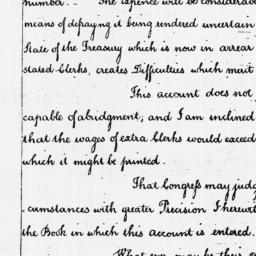 number. -- The expence will be considerab
means of defraying it being rendered uncertain
State of the Treasury which is now in arrear
stated Clerks, creates Difficulties which merit
This account does not
capable of abridgment; and I am inclined
that the wages of extra Clerks would exceed
which it might be printed.
That Congress may judg
-cumstances with greater Precision I herewit
the Book in which this account is entered.
What ever may be their